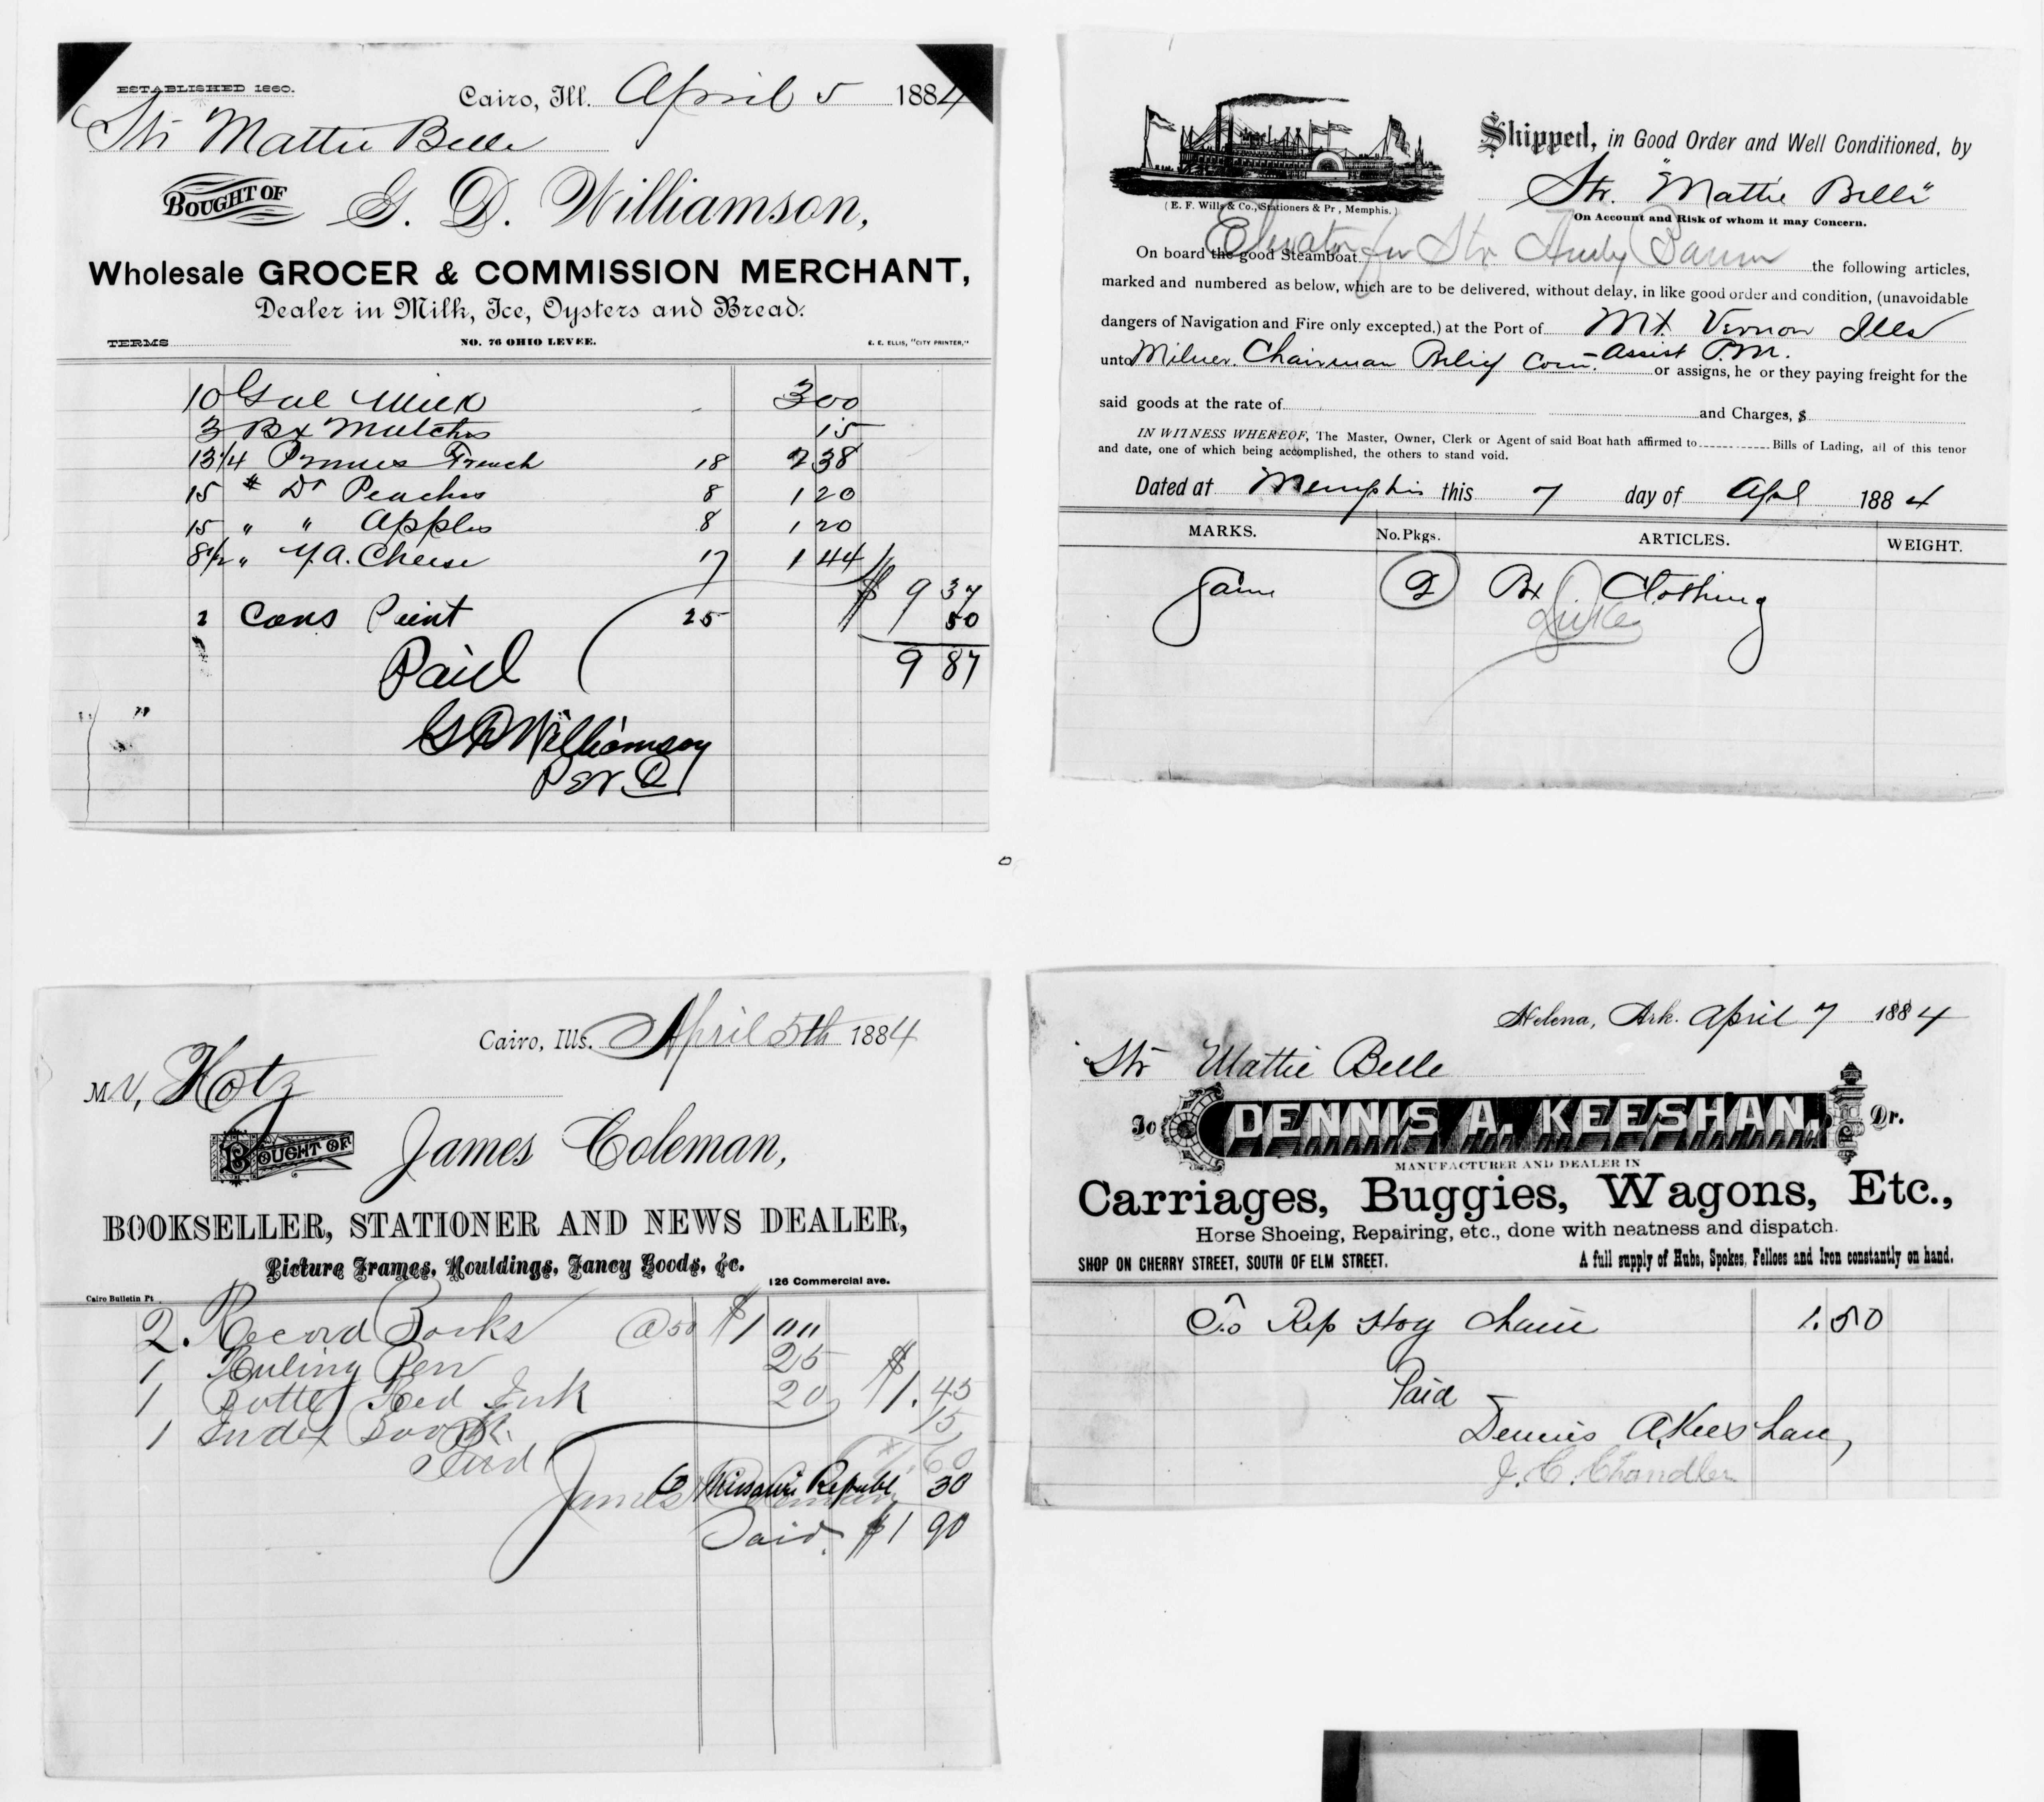 ESTABLISHED 1860.
Cairo, Ill. April 5 1884
Str Mattie Belle
BOUGHT OF G. D. Williamson,
Wholesale GROCER & COMMISSION MERCHANT,
Dealer in Milk, Ice, Oysters and Bread.
TERMS NO. 76 OHIO LEVEE. E. E. ELLIS, "CITY PRINTER,"
10 Gal Milk 3 00
3 Bx Matches 15
13 1/4 Prunes French 18 2 38
15 # Dr Peaches 8 1 20
15 " " Apples 8 1 20
8 1/2 " Y.A. Cheese 17 1 44 $ 9 37
2 Cans Paint 25 50
9 87
Paid
G D Williamson
Per
Shipped, in Good Order and Well Conditioned, by
Str. "Mattie Belle"
(E. F. Wills & Co., Stationers & Pr, Memphis.)
On Account and Risk of whom it may Concern.
On board the good Steamboat Elevator for Str Baum the following articles,
marked and numbered as below, which are to be delivered, without delay, in like good order and condition, (unavoidable
dangers of Navigation and Fire only excepted.) at the Port of Mt. Vernon Ills
unto Milner. Chairman Relief Com- Assist P.M. or assigns, he or they paying freight for the
said goods at the rate of and Charges, $
IN WITNESS WHEREOF, The Master, Owner, Clerk or Agent of said Boat hath affirmed to Bills of Lading, all of this tenor
and date, one of which being accomplished, the others to stand void.
Dated at Memphis this 7 day of Apl 1884
MARKS. No. Pkgs. ARTICLES. WEIGHT.
Same 2 Bx Clothing
Cairo, Ills. April 5th 1884
M V, Hotz
BOUGHT OF James Coleman,
BOOKSELLER, STATIONER AND NEWS DEALER,
Picture Frames, Mouldings, Fancy Goods, &c.
126 Commercial ave.
Cairo Bulletin Pt
2. Record Books @ 50 $1 00
1 Ruling Pen 25 $
1 Bottle Red Ink 20 $1.45
1 Index Book 15
Paid 1.60
James Coleman
6 Missouri Republ 30
Paid. $1 90
Helena, Ark. April 7 1884
Str Mattie Belle
To DENNIS A. KEESHAN, Dr.
MANUFACTURER AND DEALER IN
Carriages, Buggies, Wagons, Etc.,
Horse Shoeing, Repairing, etc., done with neatness and dispatch.
SHOP ON CHERRY STREET, SOUTH OF ELM STREET. A full supply of Hubs, Spokes, Felloes and Iron constantly on hand.
To Rep Hog Chain 1.50
Paid
Dennis A. Keeshan
J. C. Chandler